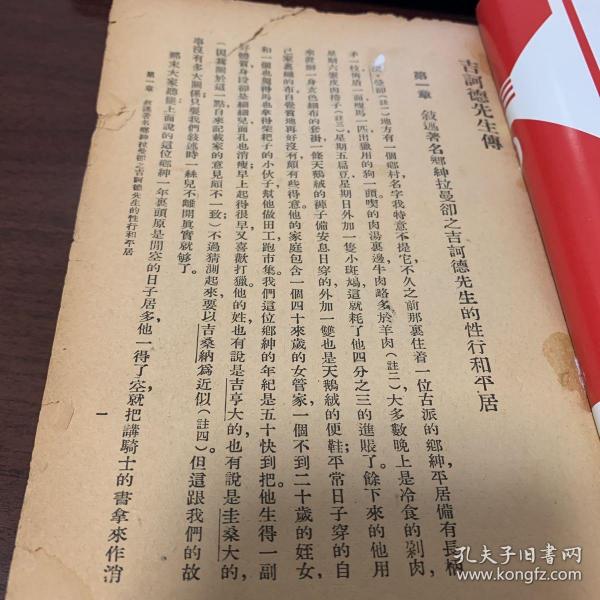 吉訶德先生傳
第一章 敍述著名鄉紳拉曼卻之吉訶德先生的性行和平居
拉·曼卻(註一)地方有一個鄉村名字我特意不提它不久之前那裏住着一位古派的鄉紳平居備有長柄
矛一枝舊盾一面瘦馬一匹出獵用的狗一頭喫的肉湯裏邊牛肉略多於羊肉(註二)大多數晚上是冷食的剁肉
星期六 星期五扁豆星期日外加一隻小斑鳩這就耗了他四分之三的進賬了。餘下來的他用
來齊辦一身玄色細布的套掛一條天鵝絨的褲子備安息日穿的外加一雙也是天鵝絨的便鞋平常日子穿的自
己家裏織的布自覺質地再好沒有頗有些得意他的家庭包含一個四十來歲的女管家一個不到二十歲的姪女
和一個也備得馬也拿得柴耙子的小伙子幫他做田工跑市集我們這位鄉紳的年紀是五十快到把他生得一副
好體質身段卻是細細兒面孔也消瘦早上起得很早又喜歡打獵他的姓也有說是吉亨大的也有說是圭桑大的,
(因爲關於這一點自來記載家的意見頗不一致)不過猜測起來要以吉桑納爲近似(註四)。但這跟我們的故
事沒有多大關係只要我們敍述時一絲兒不離開真實就够了。
那末大家聽罷上面說的這位鄉紳一年裏頭原是閒空的日子居多他一得了空就把講騎士的書拿來作消
第一章 敍述著名鄉紳拉曼卻之吉訶德先生的性行和平居
一
孔夫子旧书网
www.kongfz.com